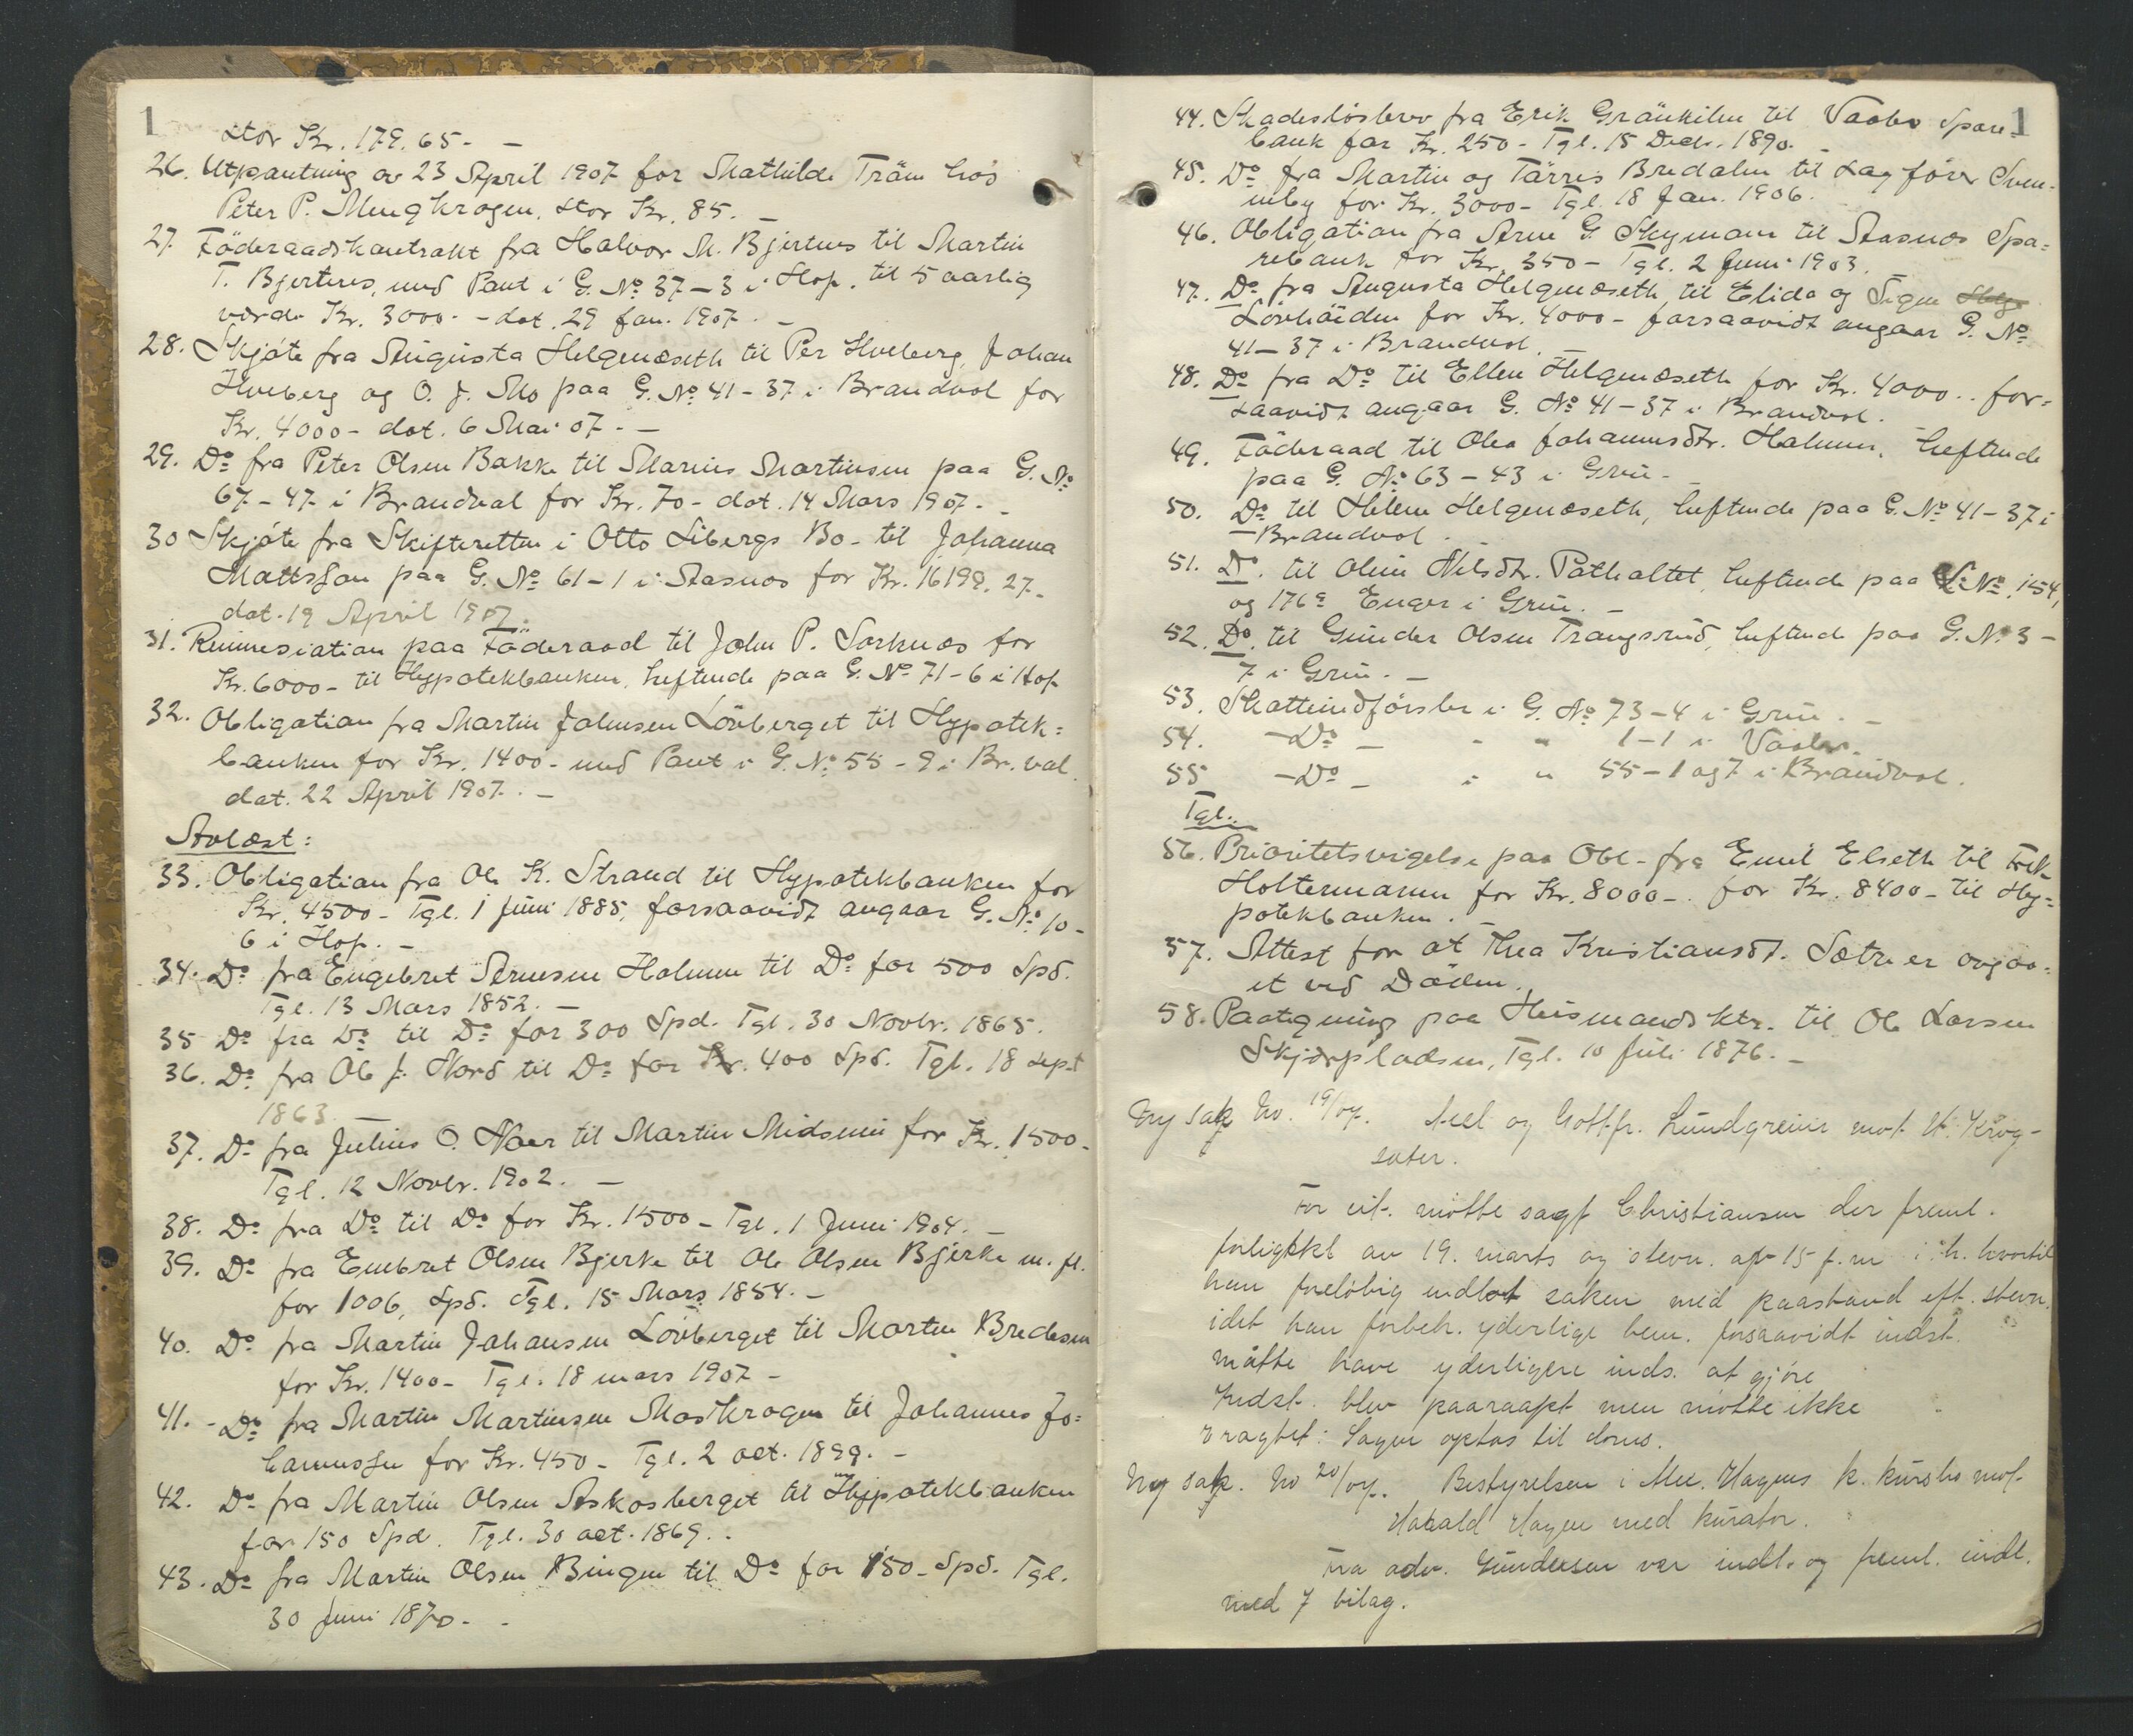 1
stor Kr. 179.65- -
26. Utpantning av 23 April 1907 for Mathilde Träm hos
Peter P. Mengkrogen, stor Kr. 85. -
27. Föderaadskontrakt fra Halvor M. Bjertnes til Martin
T. Bjertnes, med Pant i G. No 37-3 i Hof, til 5 aarlig
værdi Kr. 3000.- dat. 29 Jan. 1907. -
28. Skjöte fra Augusta Helgenæseth til Per Hveberg, Johan
Hveberg og O. J. Mo paa G. No 41-37 i Brandvol for
Kr. 4000- dat. 6 Mai 07. -
29. Do fra Peter Olsen Bakke til Marius Martinsen paa G. No
67-47 i Brandval for Kr. 70- dat. 14 Mars 1907. -
30 Skjöte fra Skifteretten i Otto Libergs Bo- til Johanna
Mattsson paa G. No 61-1 i Aasnes for Kr. 16199.27-
dat. 19 April 1907.
31. Renunsiation paa Föderaad til John P. Sorknæs for
Kr. 6000- til Hypotekbanken, heftende paa G. No 71-6 i Hof
32. Obligation fra Martin Johnsen Lövberget til Hypotek=
banken for Kr. 1400- med Pant i G. No 55-9 i Br.val.
dat. 22 April 1907. -
Avlæst:
33. Obligation fra Ole K. Strand til Hypotekbanken for
Kr. 4500- Tgl. 1 Juni 1885, forsaavidt angaar G. No 10-
6 i Hof. -
34. Do fra Engebret Arnesen Holmen til Do for 500 Spd.
Tgl. 13 Mars 1852. -
35 Do fra Do til Do for 300 Spd. Tgl. 30 Novbr. 1865.
36. Do fra Ole J. Nord til Do for Kr. 400 Spd. Tgl. 18 Sept
1863. -
37. Do fra Julius O. Noer til Martin Midsem for Kr. 1500-
Tgl. 12 Novbr. 1902. -
38. Do fra Do til Do for Kr. 1500- Tgl. 1 Juni 1904. -
39. Do fra Embret Olsen Bjerke til Ole Olsen Bjerke m. fl.
for 1006, Spd. Tgl. 15 Mars 1854. -
40. Do fra Martin Johansen Lövberget til Morten Bredesen
for Kr. 1400- Tgl. 18 mars 1907 -
41. - Do fra Martin Martinsen Moskrogen til Johannes Jo=
hannessen for Kr. 450- Tgl. 2 oct. 1899. -
42. Do fra Martin Olsen Askosberget til Hypotekbanken
for 150 Spd. Tgl. 30 oct. 1869. -
43. Do fra Martin Olsen Bingen til Do for 150- Spd. Tgl.
30 Juni 1870. -
1
44. Skadeslösbrev fra Erik Gränkilen til Vaaler Spare=
bank for Kr. 250- Tgl. 15 Decbr. 1890. -
45. Do fra Martin og Tärres Bredalen til Sagförer Sven-
neby for Kr. 3000- Tgl. 18 Jan. 1906.
46. Obligation fra Arne G. Skymoen til Aasnes Spa=
rebank for Kr. 350- Tgl. 2 Juni 1903.
47. Do fra Augusta Helgenæseth til Elida og Signe Helge
Lövhaugen for Kr. 4000- forsaavidt angaar G. No
41-37 i Brandvol. -
48. Do fra Do til Ellen Helgenæseth for Kr. 4000.. for=
saavidt angaar G. No 41-37 i Brandvol.
49. Föderaad til Olea Johannesdtr. Holmen, heftende
paa G. No 63-43 i Grue. -
50. Do til Helene Helgenæseth, heftende paa G. No 41-37 i
Brandvol.
51. Do. til Oline Nilsdtr. Pathaltet, heftende paa L. No. 154,
og 176a Enger i Grue. -
52. Do. til Gunder Olsen Trangsrud, heftende paa G. No 3-
7 i Grue. -
53. Skatteindförsler i G. No 73-4 i Grue. -
54. -Do- - " 1-1 i Vaaler.
55 -Do- i " 55-1 og 7 i Brandvol.
Tgl.:
56. Prioritetsvigelse paa Obl- fra Emil Elseth til Frk
Holtermann for Kr. 8000- for Kr. 8400- til Hy=
potekbanken. -
57. Attest for at Thea Kristiansdt. Sætre er avgaa=
et ved Döden.
58. Paategning paa Husmandsktr. til Ole Larsen
Skjærpladsen, Tgl. 10 Juli 1876. -
Ny sak No. 19/07. Axel og Gottfr. Lundgrens mot H. Krog-
sæter.
For cit. mötte sagf Christiansen der freml.
forligskl av 19. marts og stevn. af 15 f.m i h. hvortil
han foreløbig indlot saken med paastand eft. stevn.
idet han forbeh. yderlige bem. forsaavidt indst.
måtte have yderligere inds. at gjöre
Indst. blev paaraapt men mötte ikke
Eragtet: Sagen optas til doms.
Ny sak. No 20/07. Bestyrelsen i Mee. Hagens k. kursbo mot
Harald Hagen med kurator.
Fra adv. Gundersen var indl. og freml. indl.
med 7 bilag.